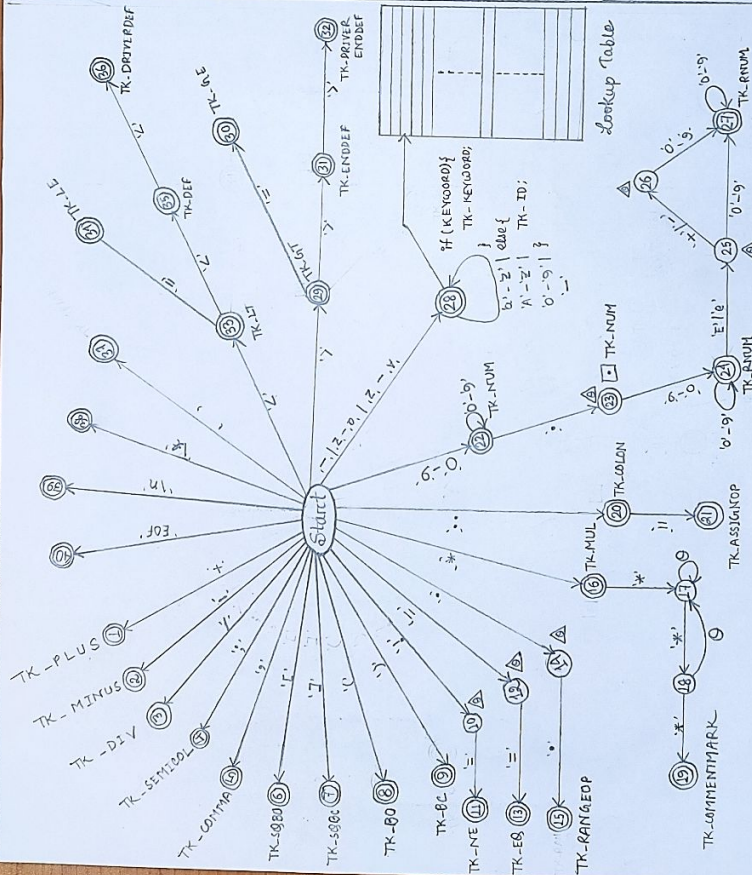 Start
'+'
1
TK_PLUS
'-'
2
TK_MINUS
'/'
3
TK_DIV
';'
4
TK_SEMICOL
','
5
TK_COMMA
'['
6
TK_SQBO
']'
7
TK_SQBC
'('
8
TK_BO
')'
9
TK_BC
'!'
10
'='
11
TK_NE
'='
12
'='
13
TK_EQ
'.'
14
'.'
15
TK_RANGEOP
'*'
16
TK_MUL
'*'
17
θ
'*'
18
θ
'*'
19
TK_COMMENTMARK
':'
20
TK_COLON
'='
21
TK_ASSIGNOP
'0'-'9'
22
'0'-'9'
TK_NUM
'.'
23
TK_NUM
'0'-'9'
24
'0'-'9'
TK_RNUM
'E'|'e'
25
'+'/'-'
26
'0'-'9'
'0'-'9'
27
'0'-'9'
TK_RNUM
28
if(KEYWORD){
TK_KEYWORD;
} else {
TK_ID;
}
'A'-'Z' |
'0'-'9' |
'_'
Lookup Table
'>'
29
TK_GT
'='
30
TK_GE
'>'
31
TK_ENDDEF
'>'
32
TK_DRIVER
ENDDEF
'<'
33
TK_LT
'='
34
TK_LE
'<'
35
TK_DEF
'<'
36
TK_DRIVERDEF
37
38
'\n'
39
'EOF'
40